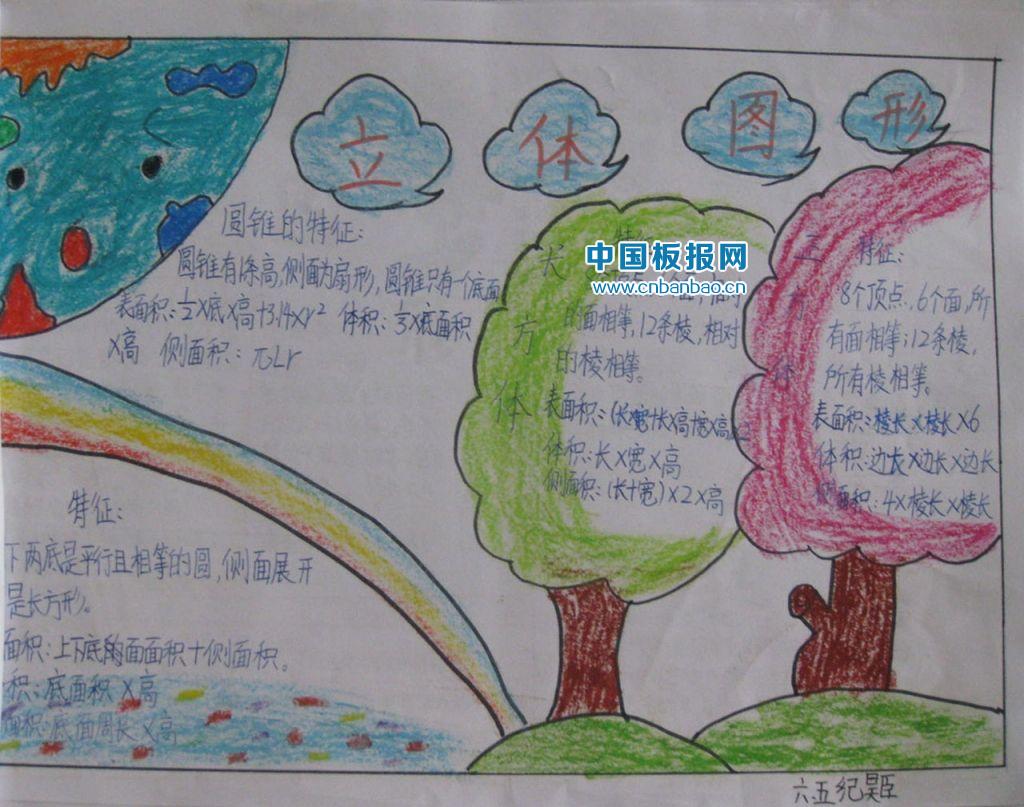 立体图形
圆锥的特征:
圆锥有1条高,侧面为扇形,圆锥只有一个底面
表面积:1/2×底×高+3.14×r² 体积:1/3×底面积
×高 侧面积:πLr
长方体
中国板报网
www.cnbanbao.cn
的面相等,12条棱,相对
的棱相等。
表面积:(长×宽+长×高+宽×高)×2
体积:长×宽×高
侧面积:(长+宽)×2×高
正方体
特征:
8个顶点,6个面,所
有面相等;12条棱,
所有棱相等。
表面积:棱长×棱长×6
体积:边长×边长×边长
侧面积:4×棱长×棱长
特征:
下两底是平行且相等的圆,侧面展开
是长方形。
面积:上下底的面面积+侧面积。
积:底面积×高
面积:底面周长×高
六.五纪昊臣